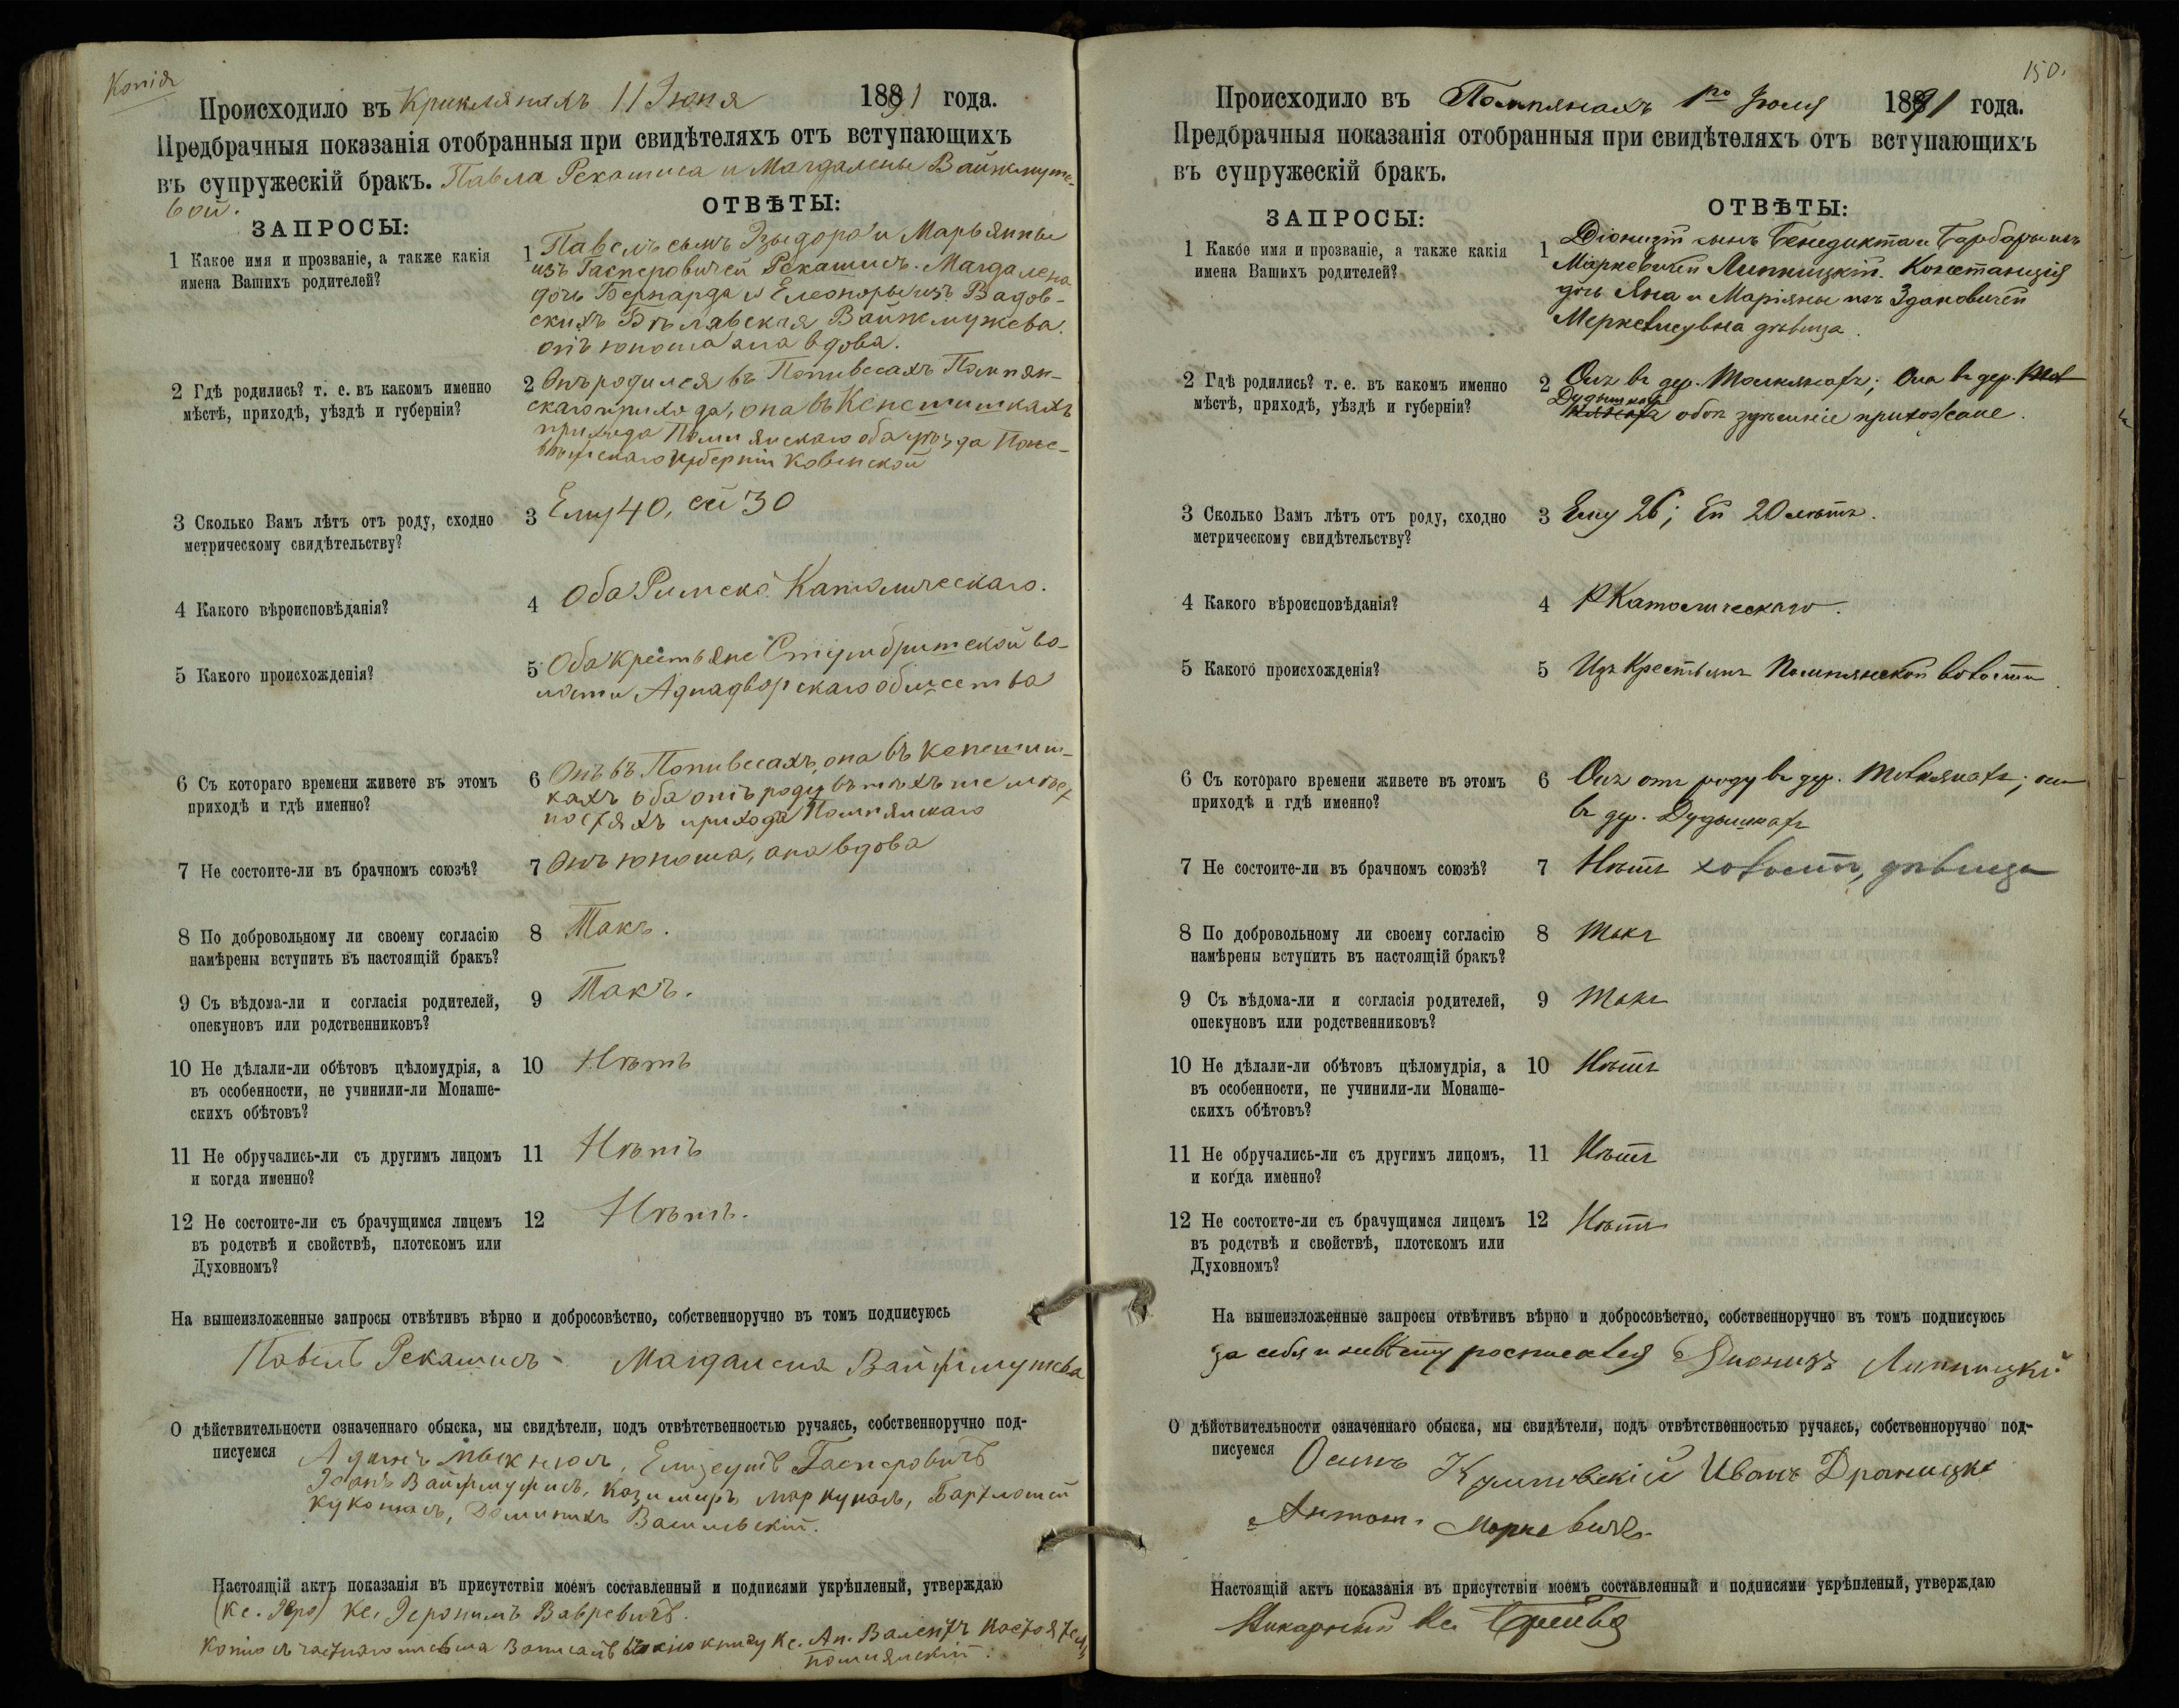 Копія
Происходило въ Крикляняхъ 11 Іюня 1891 года.
Предбрачныя показанія отобранныя при свидѣтеляхъ отъ вступающихъ
въ супружескій бракъ. Павла Рекашиса и Магдалены Вайжмуже-
вой.
ЗАПРОСЫ:
ОТВѢТЫ:
1 Какое имя и прозваніе, а также какія
имена Вашихъ родителей?
1 Павелъ сынъ Изыдора и Марьянны
изъ Гасперовичей Рекашисъ. Магдалена
дочь Бернарда и Елеоноры изъ Вадов-
скихъ Бѣлявская Вайжмужева.
онъ юноша она вдова.
2 Гдѣ родились? т. е. въ какомъ именно
мѣстѣ, приходѣ, уѣздѣ и губерніи?
2 Онъ родился въ Попивесахъ Помпян-
скаго прихода, она въ Кепешишкахъ
прихода Помпянскаго оба уѣзда Поне-
вѣжскаго губерніи Ковенской
3 Сколько Вамъ лѣтъ отъ роду, сходно
метрическому свидѣтельству?
3 Ему 40, ей 30
4 Какого вѣроисповѣданія?
4 Оба Римско Католическаго.
5 Какого происхожденія?
5 Оба крестьяне во-
лости общества
6 Съ котораго времени живете въ этомъ
приходѣ и гдѣ именно?
6 Онъ въ Попивесахъ, она въ Кепешиш-
кахъ оба отъ роду въ тѣхъ же мѣст-
ностяхъ прихода Помпянскаго
7 Не состоите-ли въ брачномъ союзѣ?
7 Онъ юноша, она вдова
8 По добровольному ли своему согласію
намѣрены вступить въ настоящій бракъ?
8 Такъ.
9 Съ вѣдома-ли и согласія родителей,
опекуновъ или родственниковъ?
9 Такъ.
10 Не дѣлали-ли обѣтовъ цѣломудрія, а
въ особенности, не учинили-ли Монаше-
скихъ обѣтовъ?
10 Нѣтъ
11 Не обручались-ли съ другимъ лицомъ
и когда именно?
11 Нѣтъ
12 Не состоите-ли съ брачущимся лицемъ
въ родствѣ и свойствѣ, плотскомъ или
Духовномъ?
12 Нѣтъ.
На вышеизложенные запросы отвѣтивъ вѣрно и добросовѣстно, собственноручно въ томъ подписуюсь
Павелъ Рекашисъ - Магдалена Вайжмужева
О дѣйствительности означеннаго обыска, мы свидѣтели, подъ отвѣтственностью ручаясь, собственноручно под-
писуемся
Гасперовичъ
Казимиръ Бартломей
Доминикъ Василевскій.
Настоящій актъ показанія въ присутствіи моемъ составленный и подписями укрѣпленый, утверждаю
Кс. Іеронимъ Вавревичъ.
книгу Кс. Настоятель
помпянскій.
150.
Происходило въ Помпянахъ 1го Іюля 1891 года.
Предбрачныя показанія отобранныя при свидѣтеляхъ отъ вступающихъ
въ супружескій бракъ.
ЗАПРОСЫ:
ОТВѢТЫ:
1 Какое имя и прозваніе, а также какія
имена Вашихъ родителей?
1 Діонизій сынъ Бенедикта и Барбары изъ
Маркевичей Липницкій. Констанція
дочь Яна и Маріяны изъ Здановичей
дѣвица.
2 Гдѣ родились? т. е. въ какомъ именно
мѣстѣ, приходѣ, уѣздѣ и губерніи?
2 Онъ въ дер. Она въ дер.
Дудышкахъ
обоп здѣшніе прихожане.
3 Сколько Вамъ лѣтъ отъ роду, сходно
метрическому свидѣтельству?
3 Ему 26; Ей 20 лѣтъ.
4 Какого вѣроисповѣданія?
4 Р Католическаго.
5 Какого происхожденія?
5 Изъ Крестьянъ Помпянской волости
6 Съ котораго времени живете въ этомъ
приходѣ и гдѣ именно?
6 Онъ отъ роду въ дер. она
въ дер. Дудышкахъ
7 Не состоите-ли въ брачномъ союзѣ?
7 Нѣтъ холостъ, дѣвица
8 По добровольному ли своему согласію
намѣрены вступить въ настоящій бракъ?
8 Такъ
9 Съ вѣдома-ли и согласія родителей,
опекуновъ или родственниковъ?
9 Такъ
10 Не дѣлали-ли обѣтовъ цѣломудрія, а
въ особенности, не учинили-ли Монаше-
скихъ обѣтовъ?
10 Нѣтъ
11 Не обручались-ли съ другимъ лицомъ,
и когда именно?
11 Нѣтъ
12 Не состоите-ли съ брачущимся лицемъ
въ родствѣ и свойствѣ, плотскомъ или
Духовномъ?
12 Нѣтъ
На вышеизложенные запросы отвѣтивъ вѣрно и добросовѣстно, собственноручно въ томъ подписуюсь
за себя и невѣсту росписался Діонизъ Липницкій
О дѣйствительности означеннаго обыска, мы свидѣтели, подъ отвѣтственностью ручаясь, собственноручно под-
писуемся
Осипъ Иванъ
Антонъ Маркевичъ
Настоящій актъ показанія въ присутствіи моемъ составленный и подписями укрѣпленый, утверждаю
Викарный Кс.